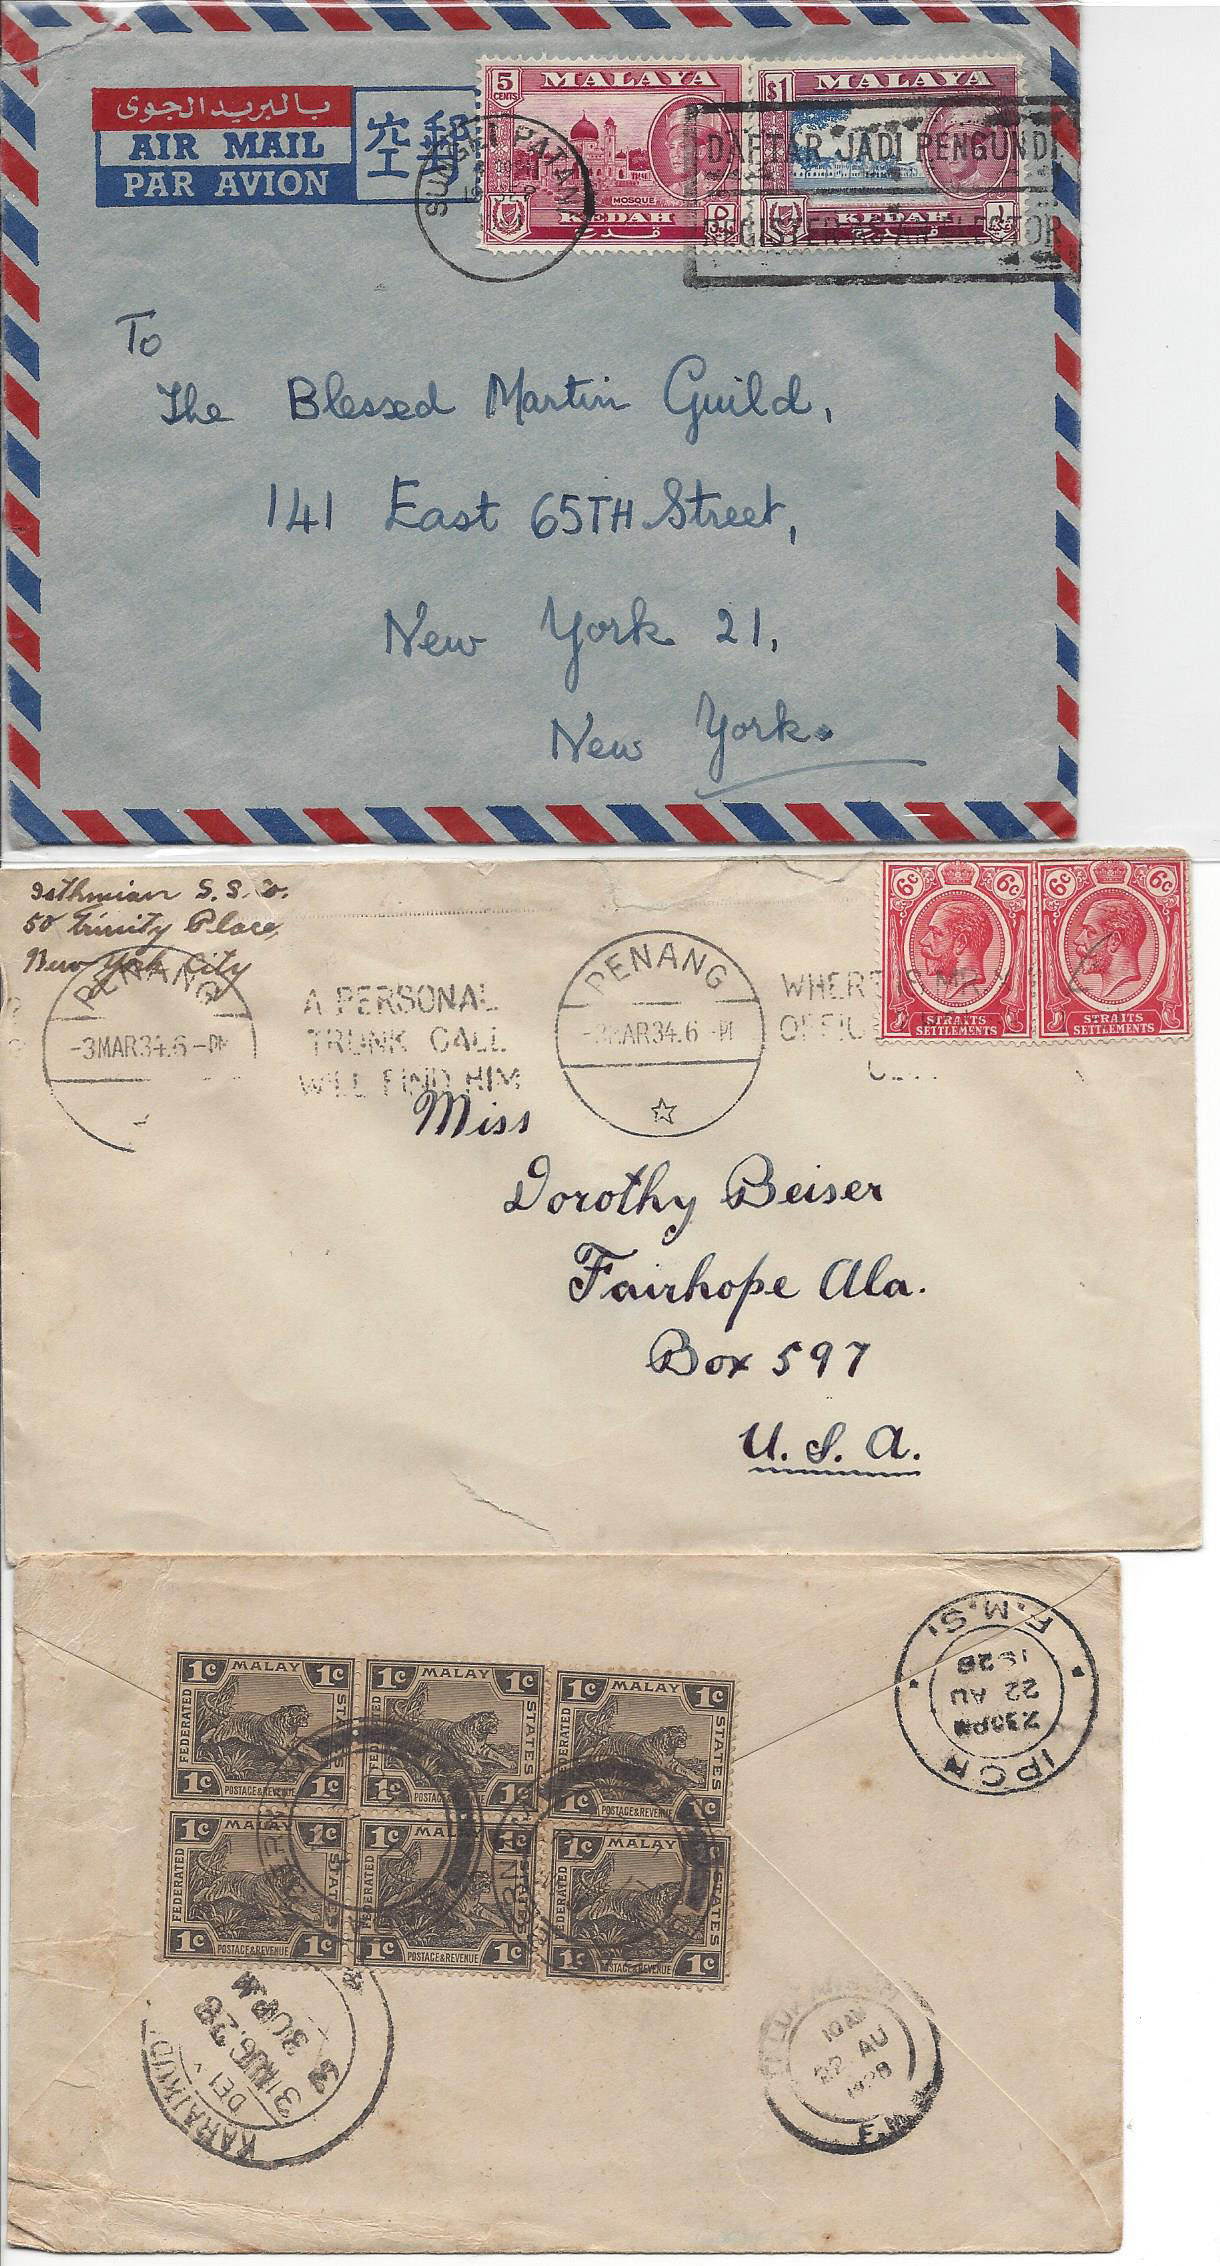 بالبريد الجوى
AIR MAIL
PAR AVION
空郵
5 CENTS MALAYA
MOSQUE
KEDAH
قدح
$1 MALAYA
KEDAH
قدح
SUNGEI PATANI
DAFTAR JADI PENGUNDI
REGISTER AS AN ELECTOR
To
The Blessed Martin Guild,
141 East 65TH Street,
New York 21,
New York.
Isthmian S.S. Co.
50 Trinity Place,
New York City
PENANG
-3MAR34.6-PM
A PERSONAL
TRUNK CALL
WILL FIND HIM
PENANG
MAR34.6-PM
WHERE IS MR
OFFICE
6c 6c
STRAITS
SETTLEMENTS
6c 6c
STRAITS
SETTLEMENTS
Miss
Dorothy Beiser
Fairhope Ala.
Box 597
U. S. A.
1c MALAY 1c
FEDERATED STATES
1c POSTAGE & REVENUE 1c
1c MALAY 1c
STATES
POSTAGE & REVENUE 1c
1c MALAY 1c
FEDERATED STATES
1c POSTAGE & REVENUE 1c
1c MALAY 1c
FEDERATED STATES
1c POSTAGE & REVENUE 1c
1c MALAY 1c
STATES
1c POSTAGE & REVENUE 1c
MALAY 1c
FEDERATED STATES
1c POSTAGE & REVENUE 1c
IPOH
2 30PM
22 AU
1928
F.M.S.
KARAIKUDI
DEL
31 AUG. 28
3 30P.M
10AM
22 AU
1928
F.M.